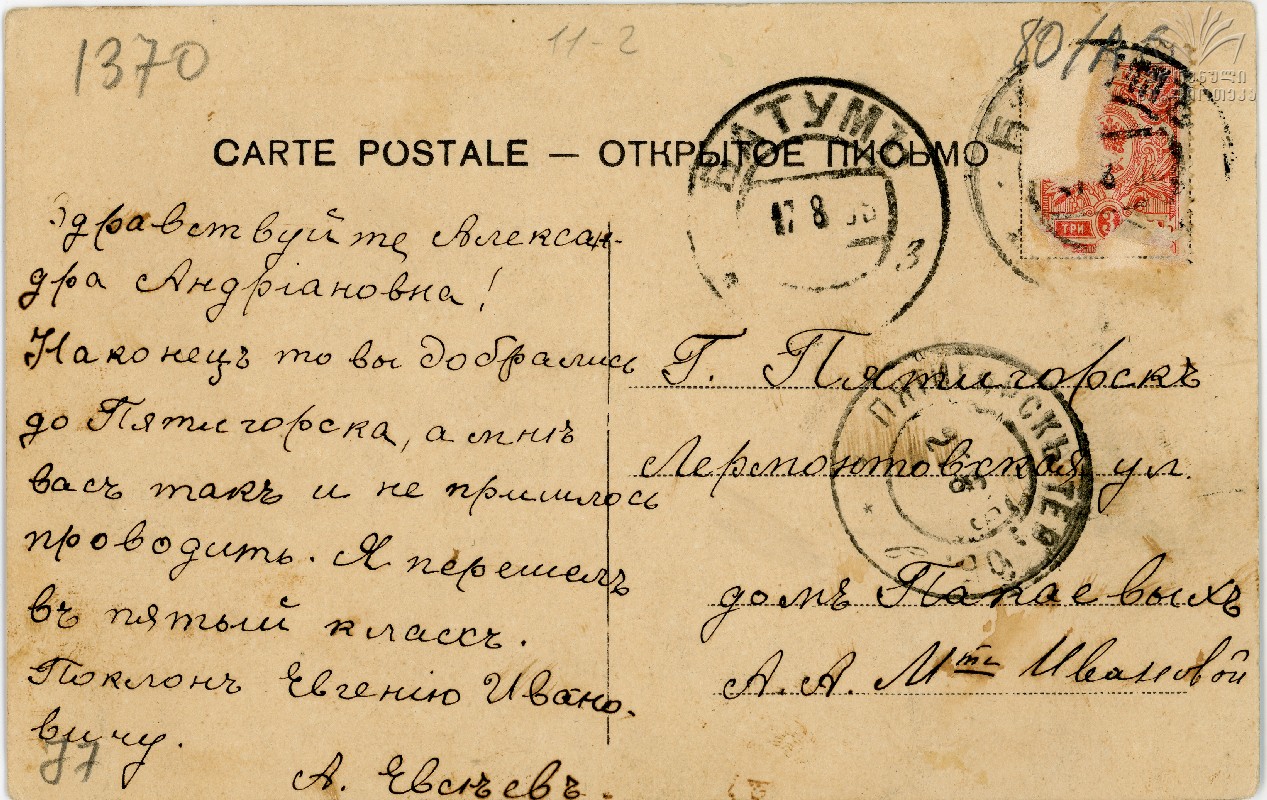 1370
11-2
80/А
CARTE POSTALE — ОТКРЫТОЕ ПИСЬМО
БАТУМЪ
17 8
3
ТРИ
Здравствуйте Алексан-
дра Андріановна!
Наконецъ то вы добрались
до Пятигорска, а мнѣ
васъ такъ и не пришлось
проводить. Я перешелъ
въ пятый классъ.
Поклонъ Евгенію Ивано-
вичу.
А. Евсѣевъ.
77
Г. Пятигорскъ
Лермонтовская ул.
домъ Пакаевыхъ
А. А. Мтс Ивановой
ПЯТИГОРСКЪ